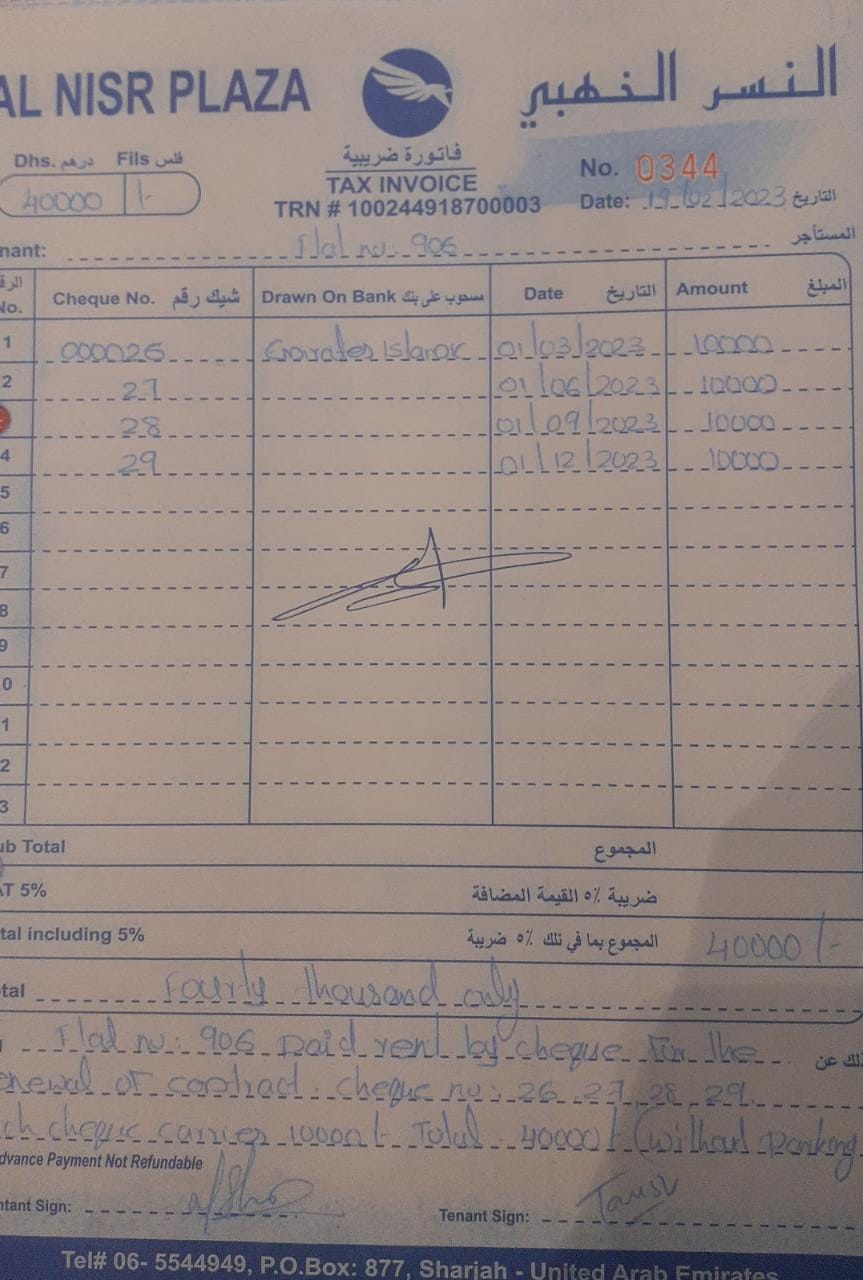 AL NISR PLAZA
النسر الذهبي
Dhs. درهم Fils فلس
40000 /-
فاتورة ضريبية
TAX INVOICE
TRN # 100244918700003
No. 0344
Date: 19/02/2023 التاريخ
nant: Flat no: 906 المستأجر
الرق No. Cheque No. شيك رقم Drawn On Bank مسحوب على بنك Date التاريخ Amount المبلغ
1 000026 Emirates Islamic 01/03/2023 10000
2 27 01/06/2023 10000
28 01/09/2023 10000
4 29 01/12/2023 10000
5
6
7
8
9
0
1
2
3
ub Total المجموع
AT 5% ضريبة ٥٪ القيمة المضافة
tal including 5% المجموع بما في تلك ٥٪ ضريبة 40000/-
tal Fourty thousand only
Flat no: 906 paid rent by cheque for the لك عن
enewal of contract. cheque no: 26, 27, 28, 29.
ch cheque carries 10000/- Total 40000/- (without parking
dvance Payment Not Refundable
ntant Sign:
Tenant Sign:
Tel# 06- 5544949, P.O.Box: 877, Sharjah - United Arab Emirates